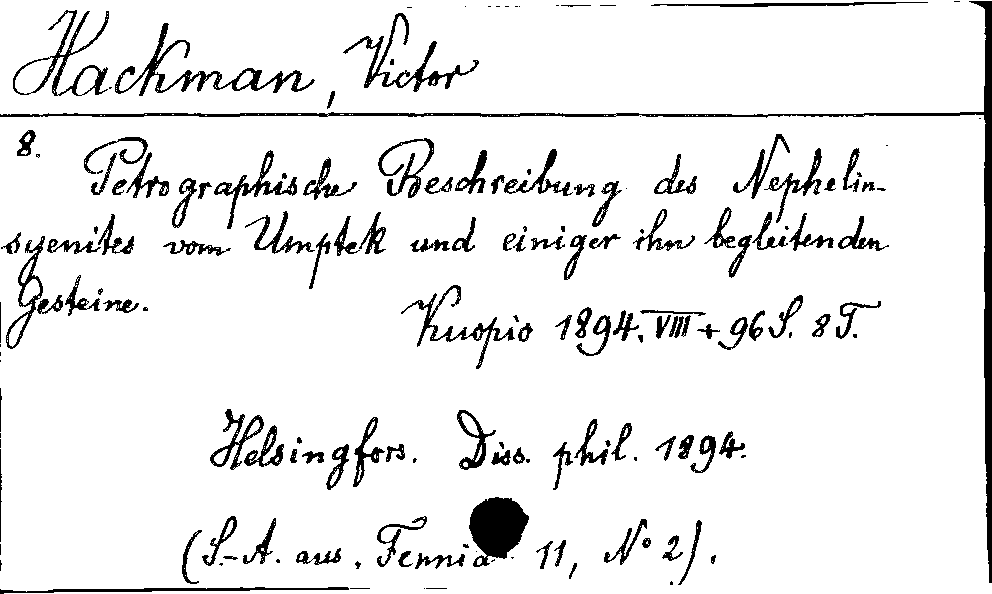 Hackman, Victor
8. Petrographische Beschreibung des Nephelin-
syenites vom Umptek und einiger ihn begleitenden
Gesteine.
Kuopio 1894. VIII + 96 S. 8 T.
Helsingfors. Diss. phil. 1894.
(S.-A. aus. Fennia 11, No 2).